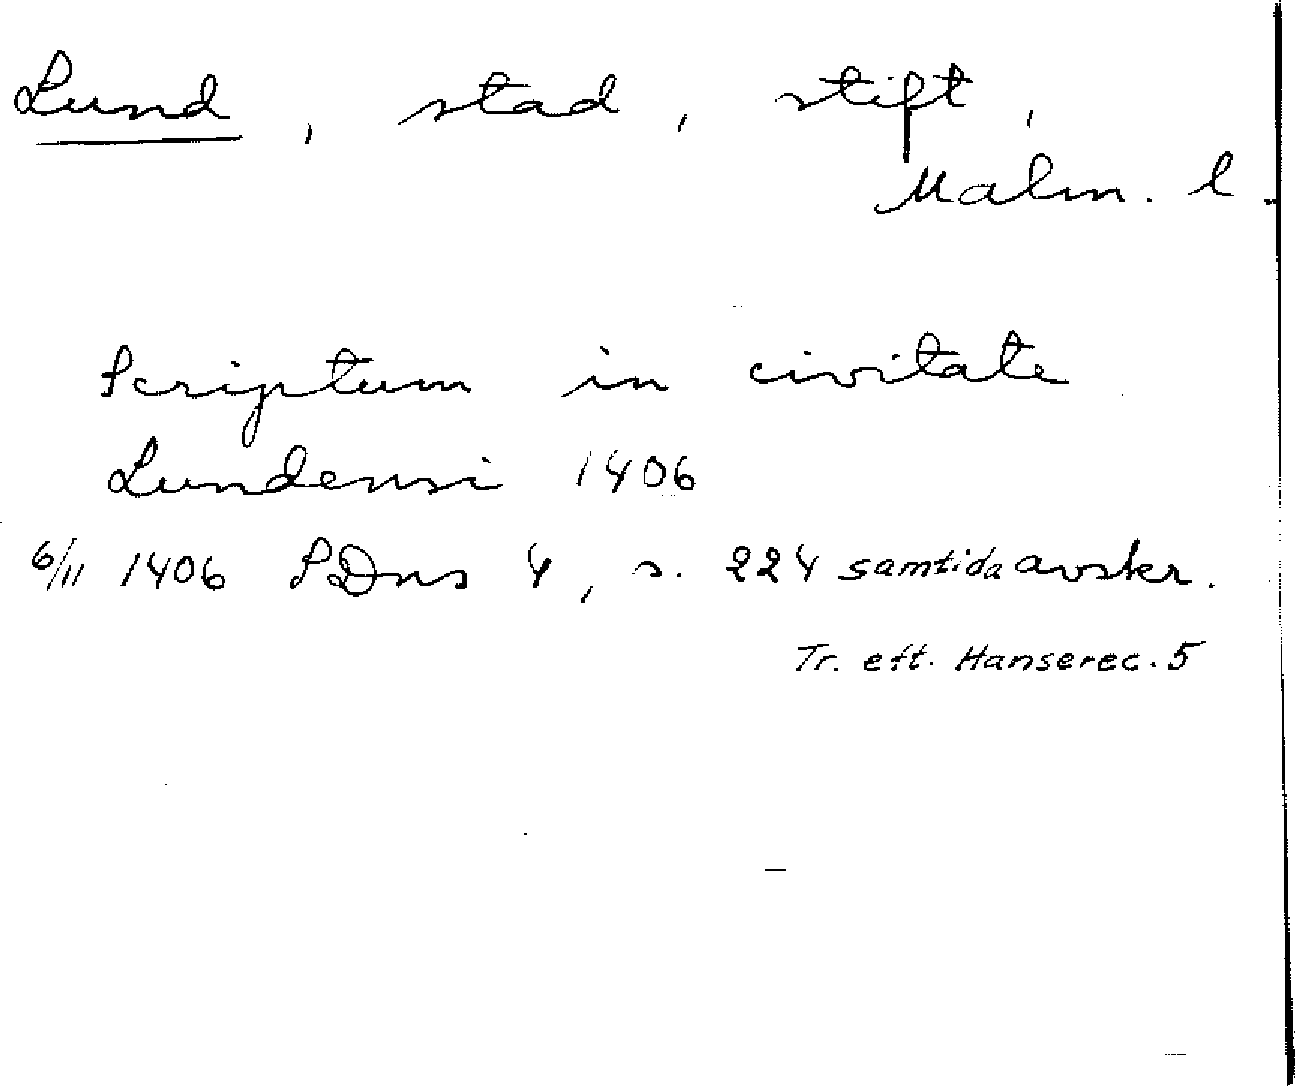 Lund, stad, stift,
Malm. l.
Scriptum in civitate
Lundensi 1406
6/11 1406 SDns 4, s. 224 samtida avskr.
Tr. eft. Hanserec. 5